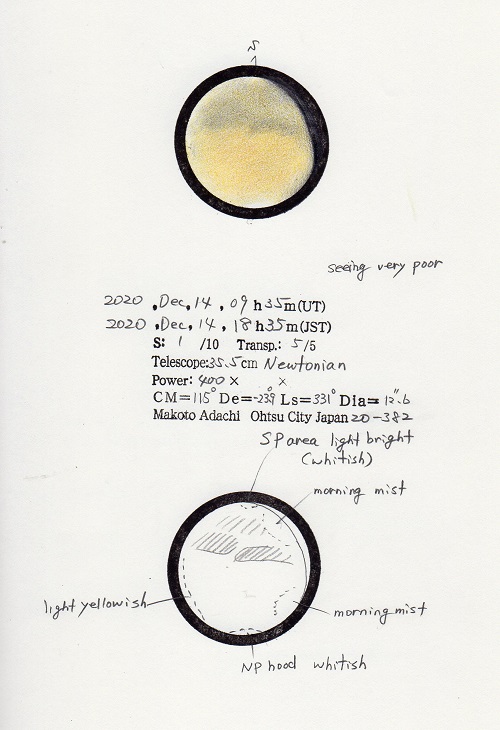 S
seeing very poor
2020, Dec, 14, 09h35m(UT)
2020, Dec, 14, 18h35m(JST)
S: 1 /10 Transp.: 5/5
Telescope:35.5cm Newtonian
Power: 400× ×
CM=115° De=-23.9° Ls=331° Dia=12".6
Makoto Adachi Ohtsu City Japan 20-382
SParea light bright
(whitish)
morning mist
light yellowish
morning mist
NP hood whitish